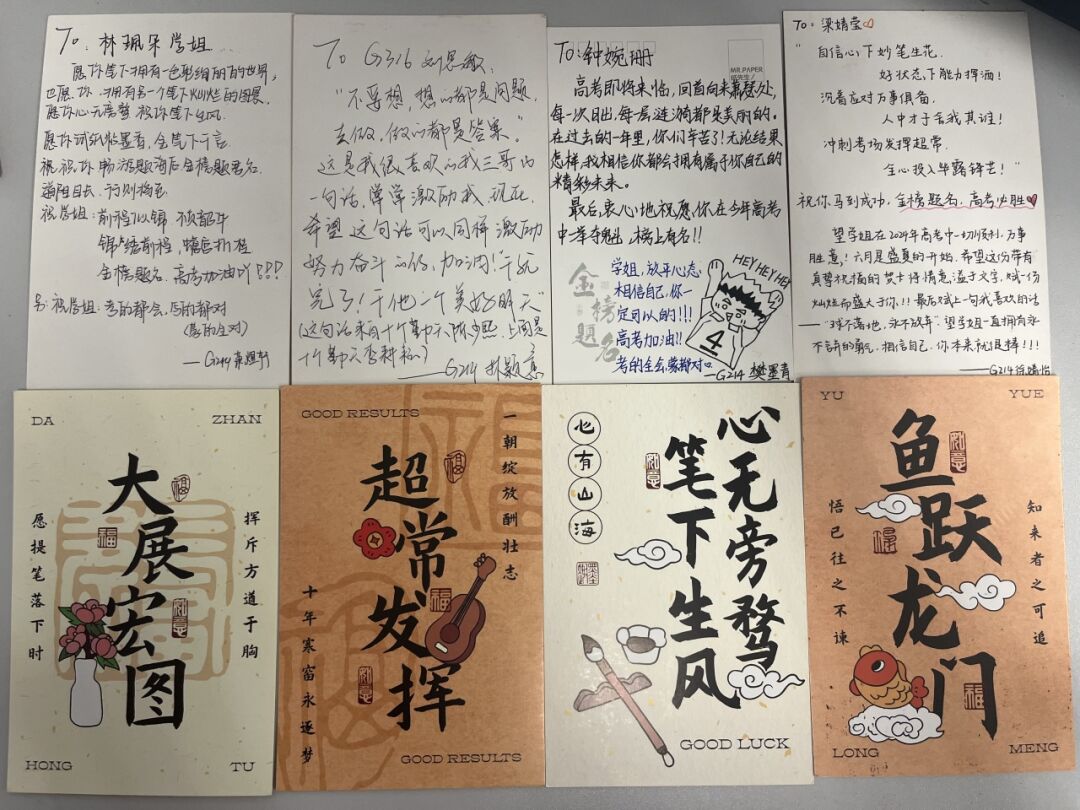 To：林珮朵学姐
愿你笔下拥有一色彩绚丽的世界，
也愿你拥有多个笔下灿烂的图景，
愿你心无旁骛 祝你笔下生风
愿你试纸粘墨香，金笔下千言
祝你畅游题海后金榜题名
道阻且长，行则将至
祝学姐：前程似锦 顶部牛
锦绣前程，蟾宫折桂
金榜题名，高考加油！！！
另：祝学姐：考的都会，蒙的都对
(蒙的全对)
——G214
To G316 刘思敏：
"不要想，想的都是问题，
去做，做的都是答案。"
这是我很喜欢的我三哥的
一句话，常常激励我，现在，
希望这句话可以同样激励
努力奋斗的你，加油！干就
完了！干他一个美好明天
(这句话来自十个勤天陈少熙，上面是
十个勤天李耕耘)
——G214 林颖惠
To：钟婉珊
MR.PAPER
纸先生
高考即将来临，回首向来萧瑟处，
每一次日出，每一层涟漪都是美丽的。
在过去的一年里，你们辛苦了！无论结果
怎样，我相信你都会拥有属于你自己的
精彩未来。
最后，衷心地祝愿你在今年高考
中举夺魁，榜上有名！！
金榜题名
学姐，放平心态，
相信自己，你一
定可以的！！！
高考加油！！
考的全会，蒙都对。
HEY HEY HEY
4
——G214 樊墨青
To：梁婧莹
"自信心下妙笔生花，
好状态下能力挥洒！
沉着应对万事俱备，
人中才子舍我其谁！
冲刺考场发挥超常，
全心投入毕露锋芒！"
祝你马到成功，金榜题名，高考必胜
望学姐在2024年高考中一切顺利，万事
胜意！六月是盛夏的开始，希望这份带有
真挚祝福的贺卡将情意溢于文字，赋一份
灿烂而盛大于你！！最后赋上一句我喜欢的话
——"球不落地，永不放弃"望学姐一直拥有永
不言弃的勇气，相信自己，你本来就很棒！！！
——G214
DA
ZHAN
大展宏图
愿提笔落下时
挥斥方遒于胸
HONG
TU
GOOD RESULTS
超常发挥
一朝绽放酬壮志
十年寒窗永逐梦
GOOD RESULTS
心有山海
心无旁骛
笔下生风
GOOD LUCK
YU
YUE
鱼跃龙门
悟已往之不谏
知来者之可追
LONG
MENG